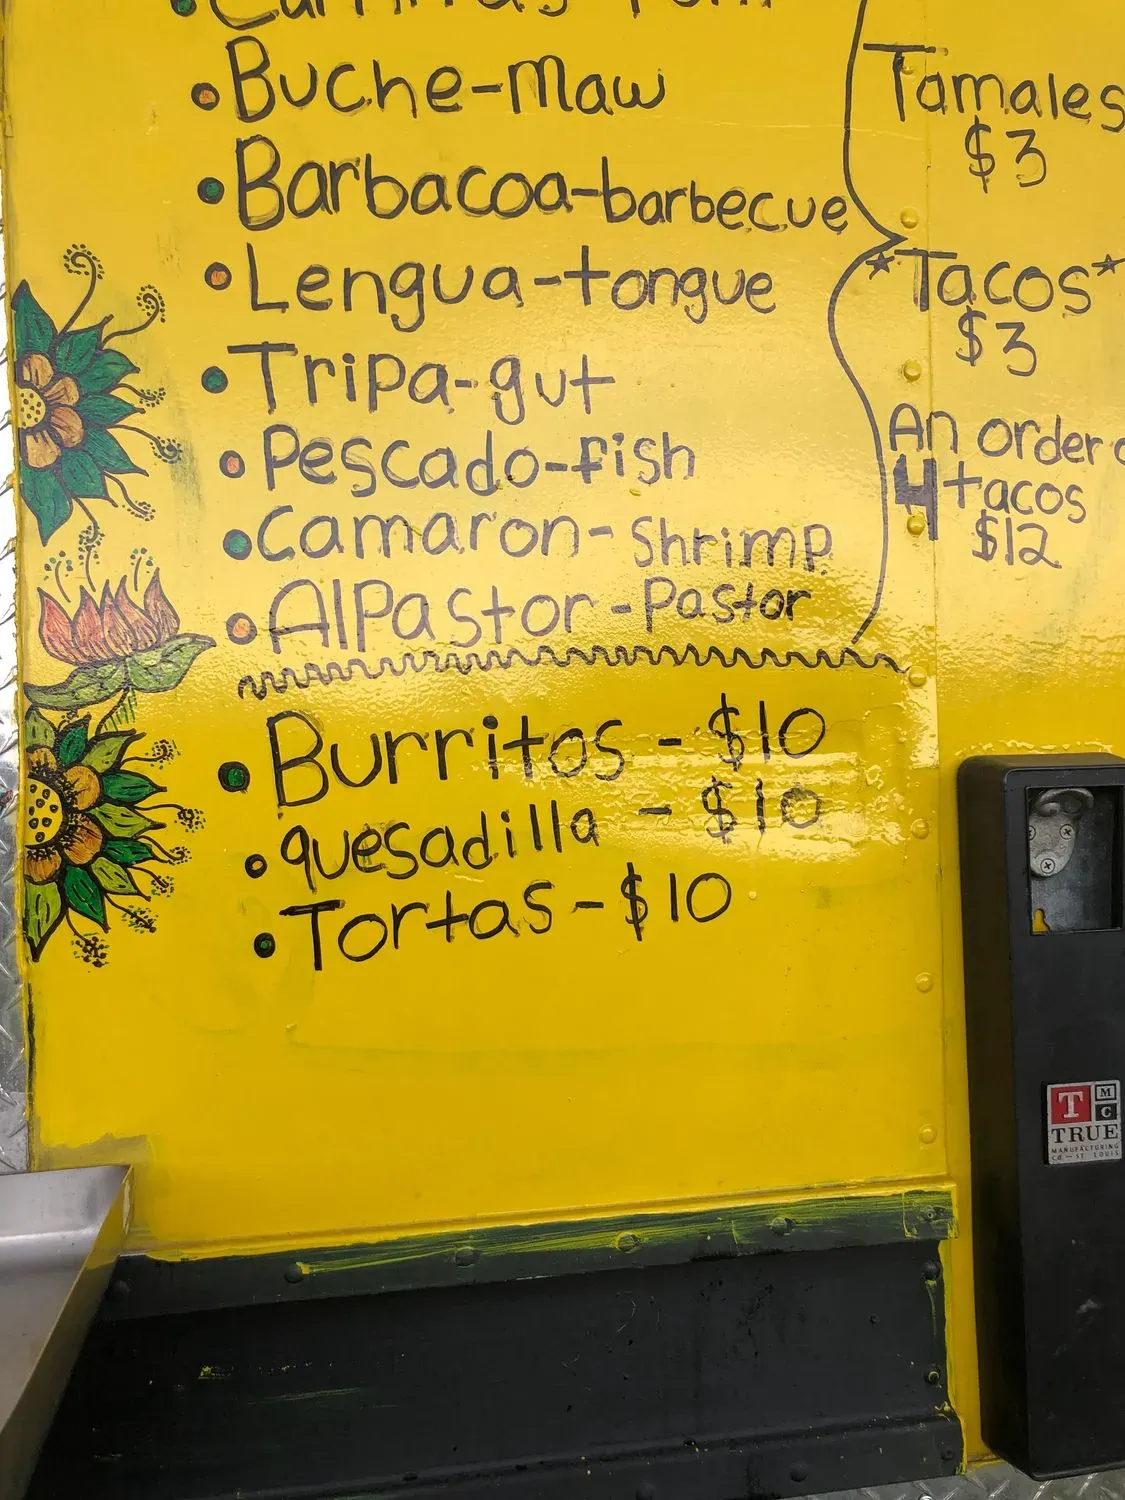 Buche-Maw
Barbacoa-barbecue
Lengua-tongue
Tripa-gut
Pescado-fish
Camaron-Shrimp
AlPastor-Pastor
Burritos - $10
quesadilla - $10
Tortas - $10
Tamales
$3
*Tacos*
$3
An order
4 tacos
$12
T M C
TRUE
MANUFACTURING
CO.—ST. LOUIS